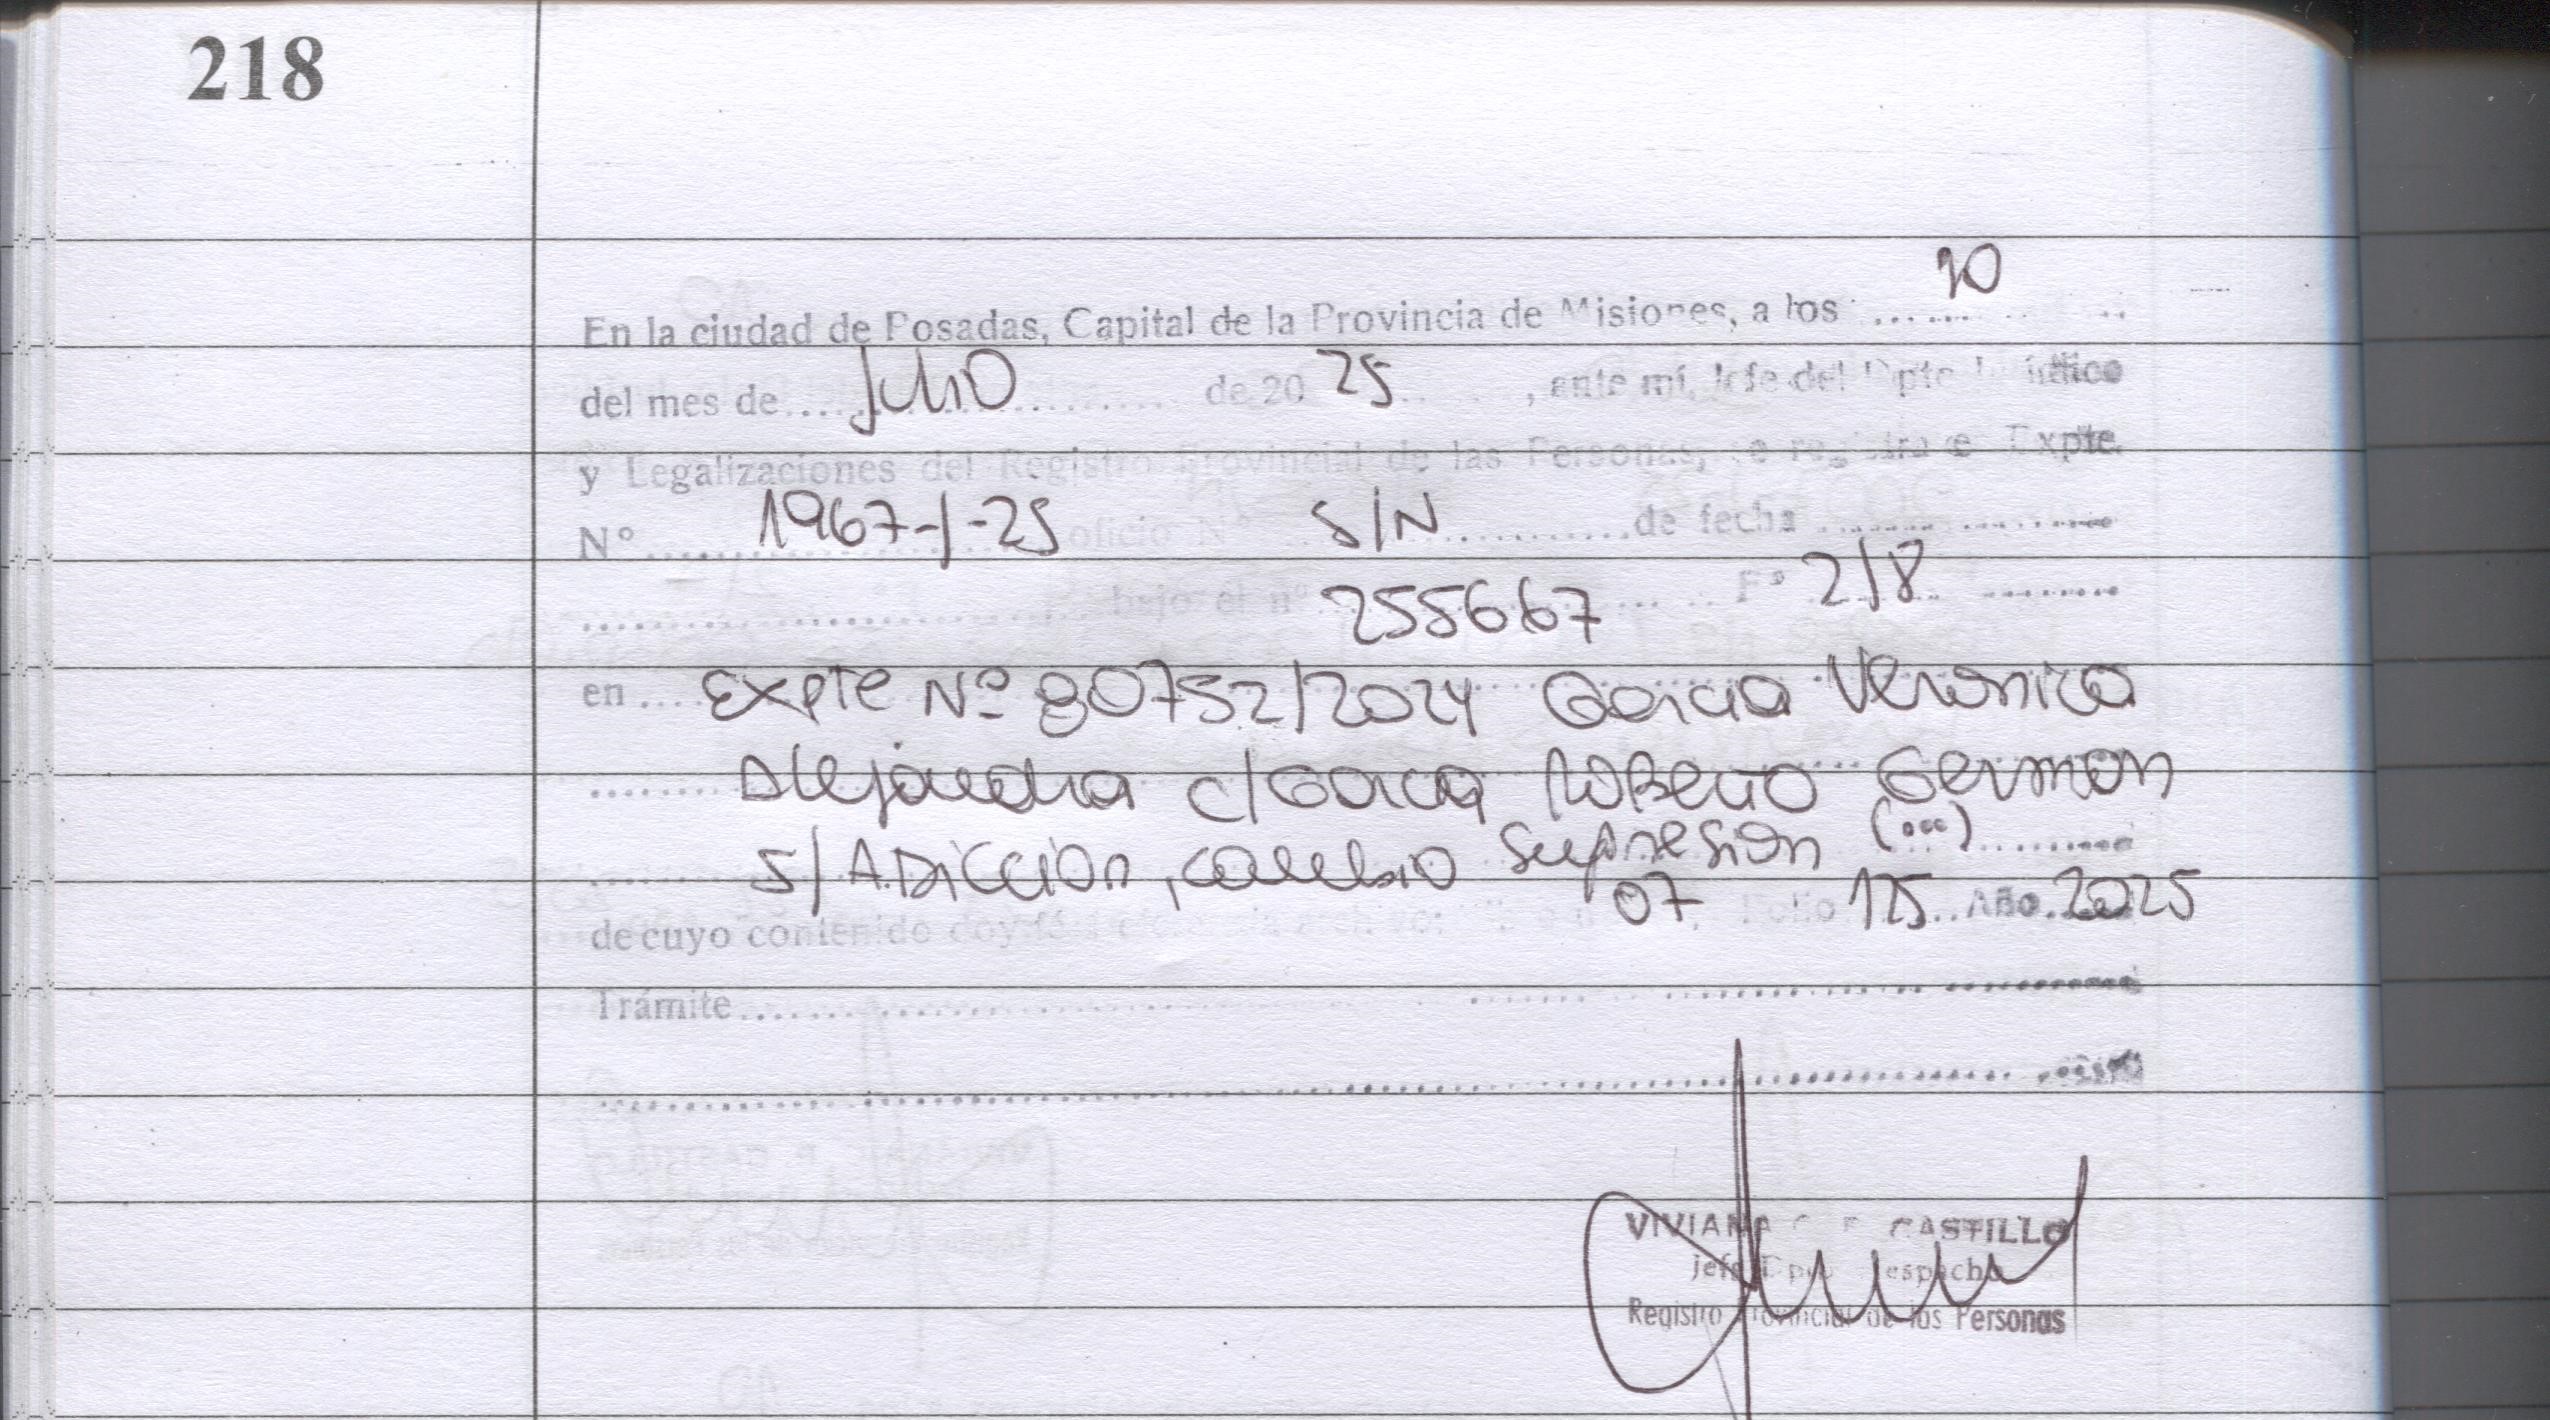 218
En la ciudad de Posadas, Capital de la Provincia de Misiones, a los ........ 10
del mes de .... Julio .... de 20 25 , ante mí, Jefe del Dpto Jurídico
y Legalizaciones del Registro Provincial de las Personas, se registra e Expte.
N° .... 1967-J-25 oficio N° S/N .... de fecha ....
.... bajo el n° 255667 F° 218 ....
en .... Expte Nº 80752/2024 Garcia Veronica
Alejandra c/Garcia Roberto German
s/ADiccion, cambio supresion (...)
de cuyo contenido doy fé 07 Folio 125 Año 2025
Trámite....
VIVIANA CASTILLO
Jefe Dpto Despacho
Registro Provincial de las Personas